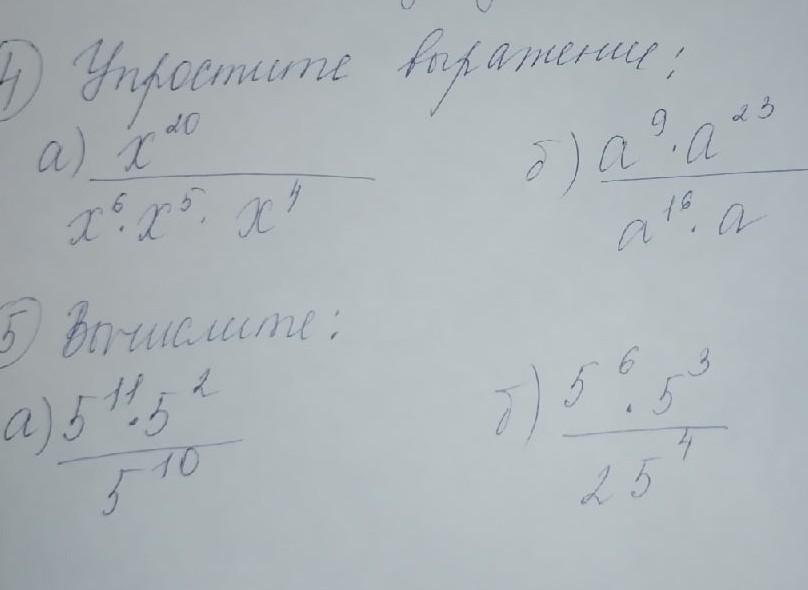 4) Упростите выражение:
а) x^20 / (x^6 · x^5 · x^4) б) (a^9 · a^23) / (a^16 · a)
5) Вычислите:
а) (5^11 · 5^2) / 5^10 б) (5^6 · 5^3) / 25^4